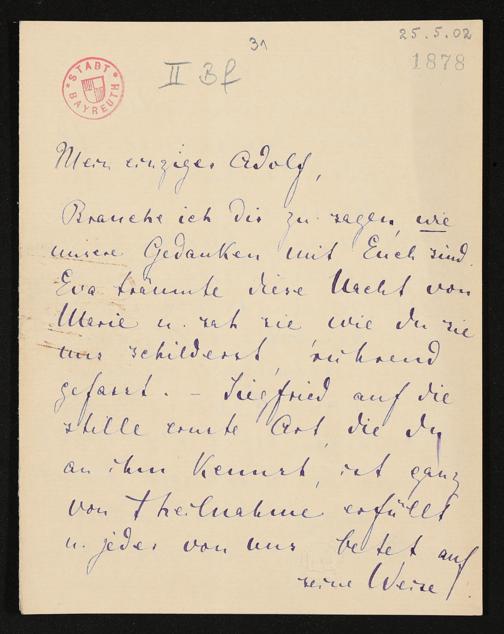 31
25.5.02
1878
STADT BAYREUTH
II Bf
Mein einziger Adolf,
Brauche ich dir zu sagen, wie
unsere Gedanken mit Euch sind.
Eva träumte diese Nacht von
Marie u. sah sie wie du sie
uns schilderst, rührend
gefasst. – Siegfried auf die
stille ernste Art, die du
an ihm kennst, ist ganz
von Theilnahme erfüllt
u. jeder von uns betet auf
seine Weise!